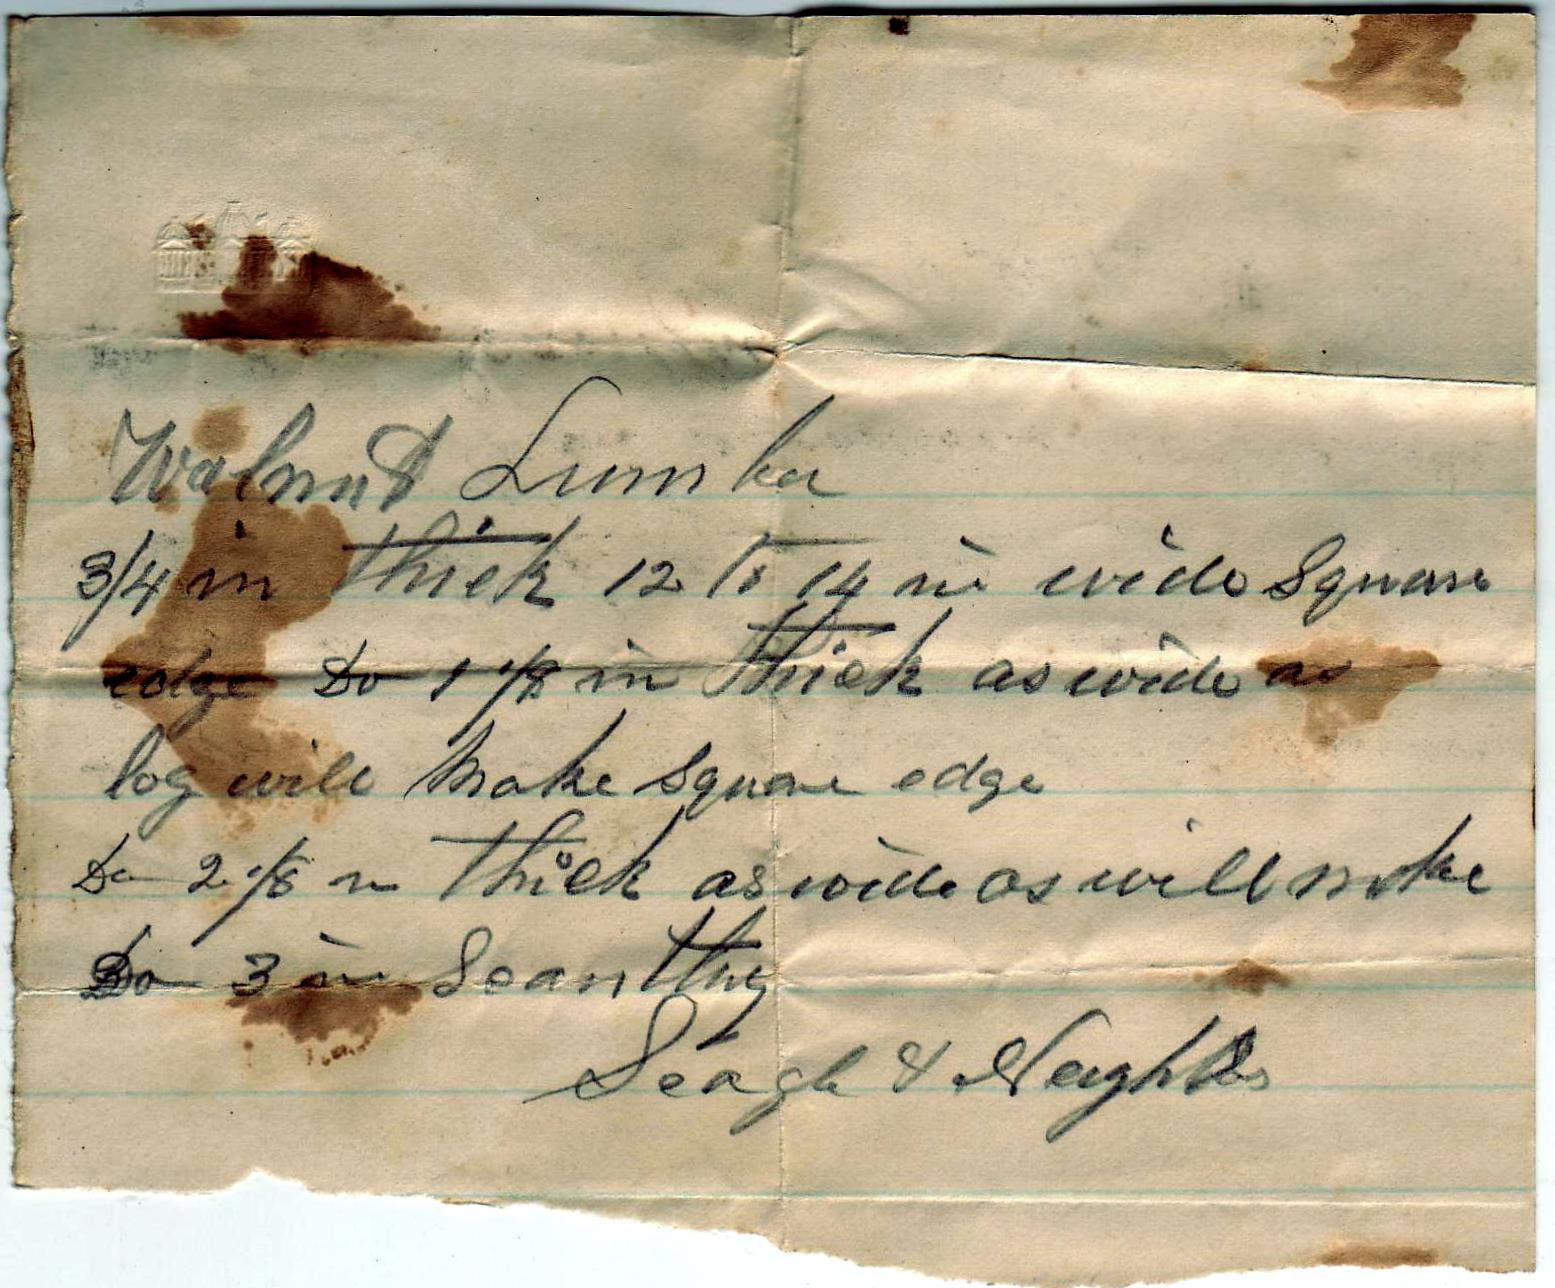 Walnut Lumber
3/4 in thick 12 to 14 in wide Square
edge Do 1 1/8 in thick as wide as
log will make square edge
Do 2 1/8 in thick as wide as will make
Do 3 in Scantling
Seagle &